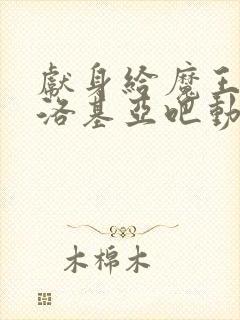 獻身給魔王
洛基亞吧動
木棉木